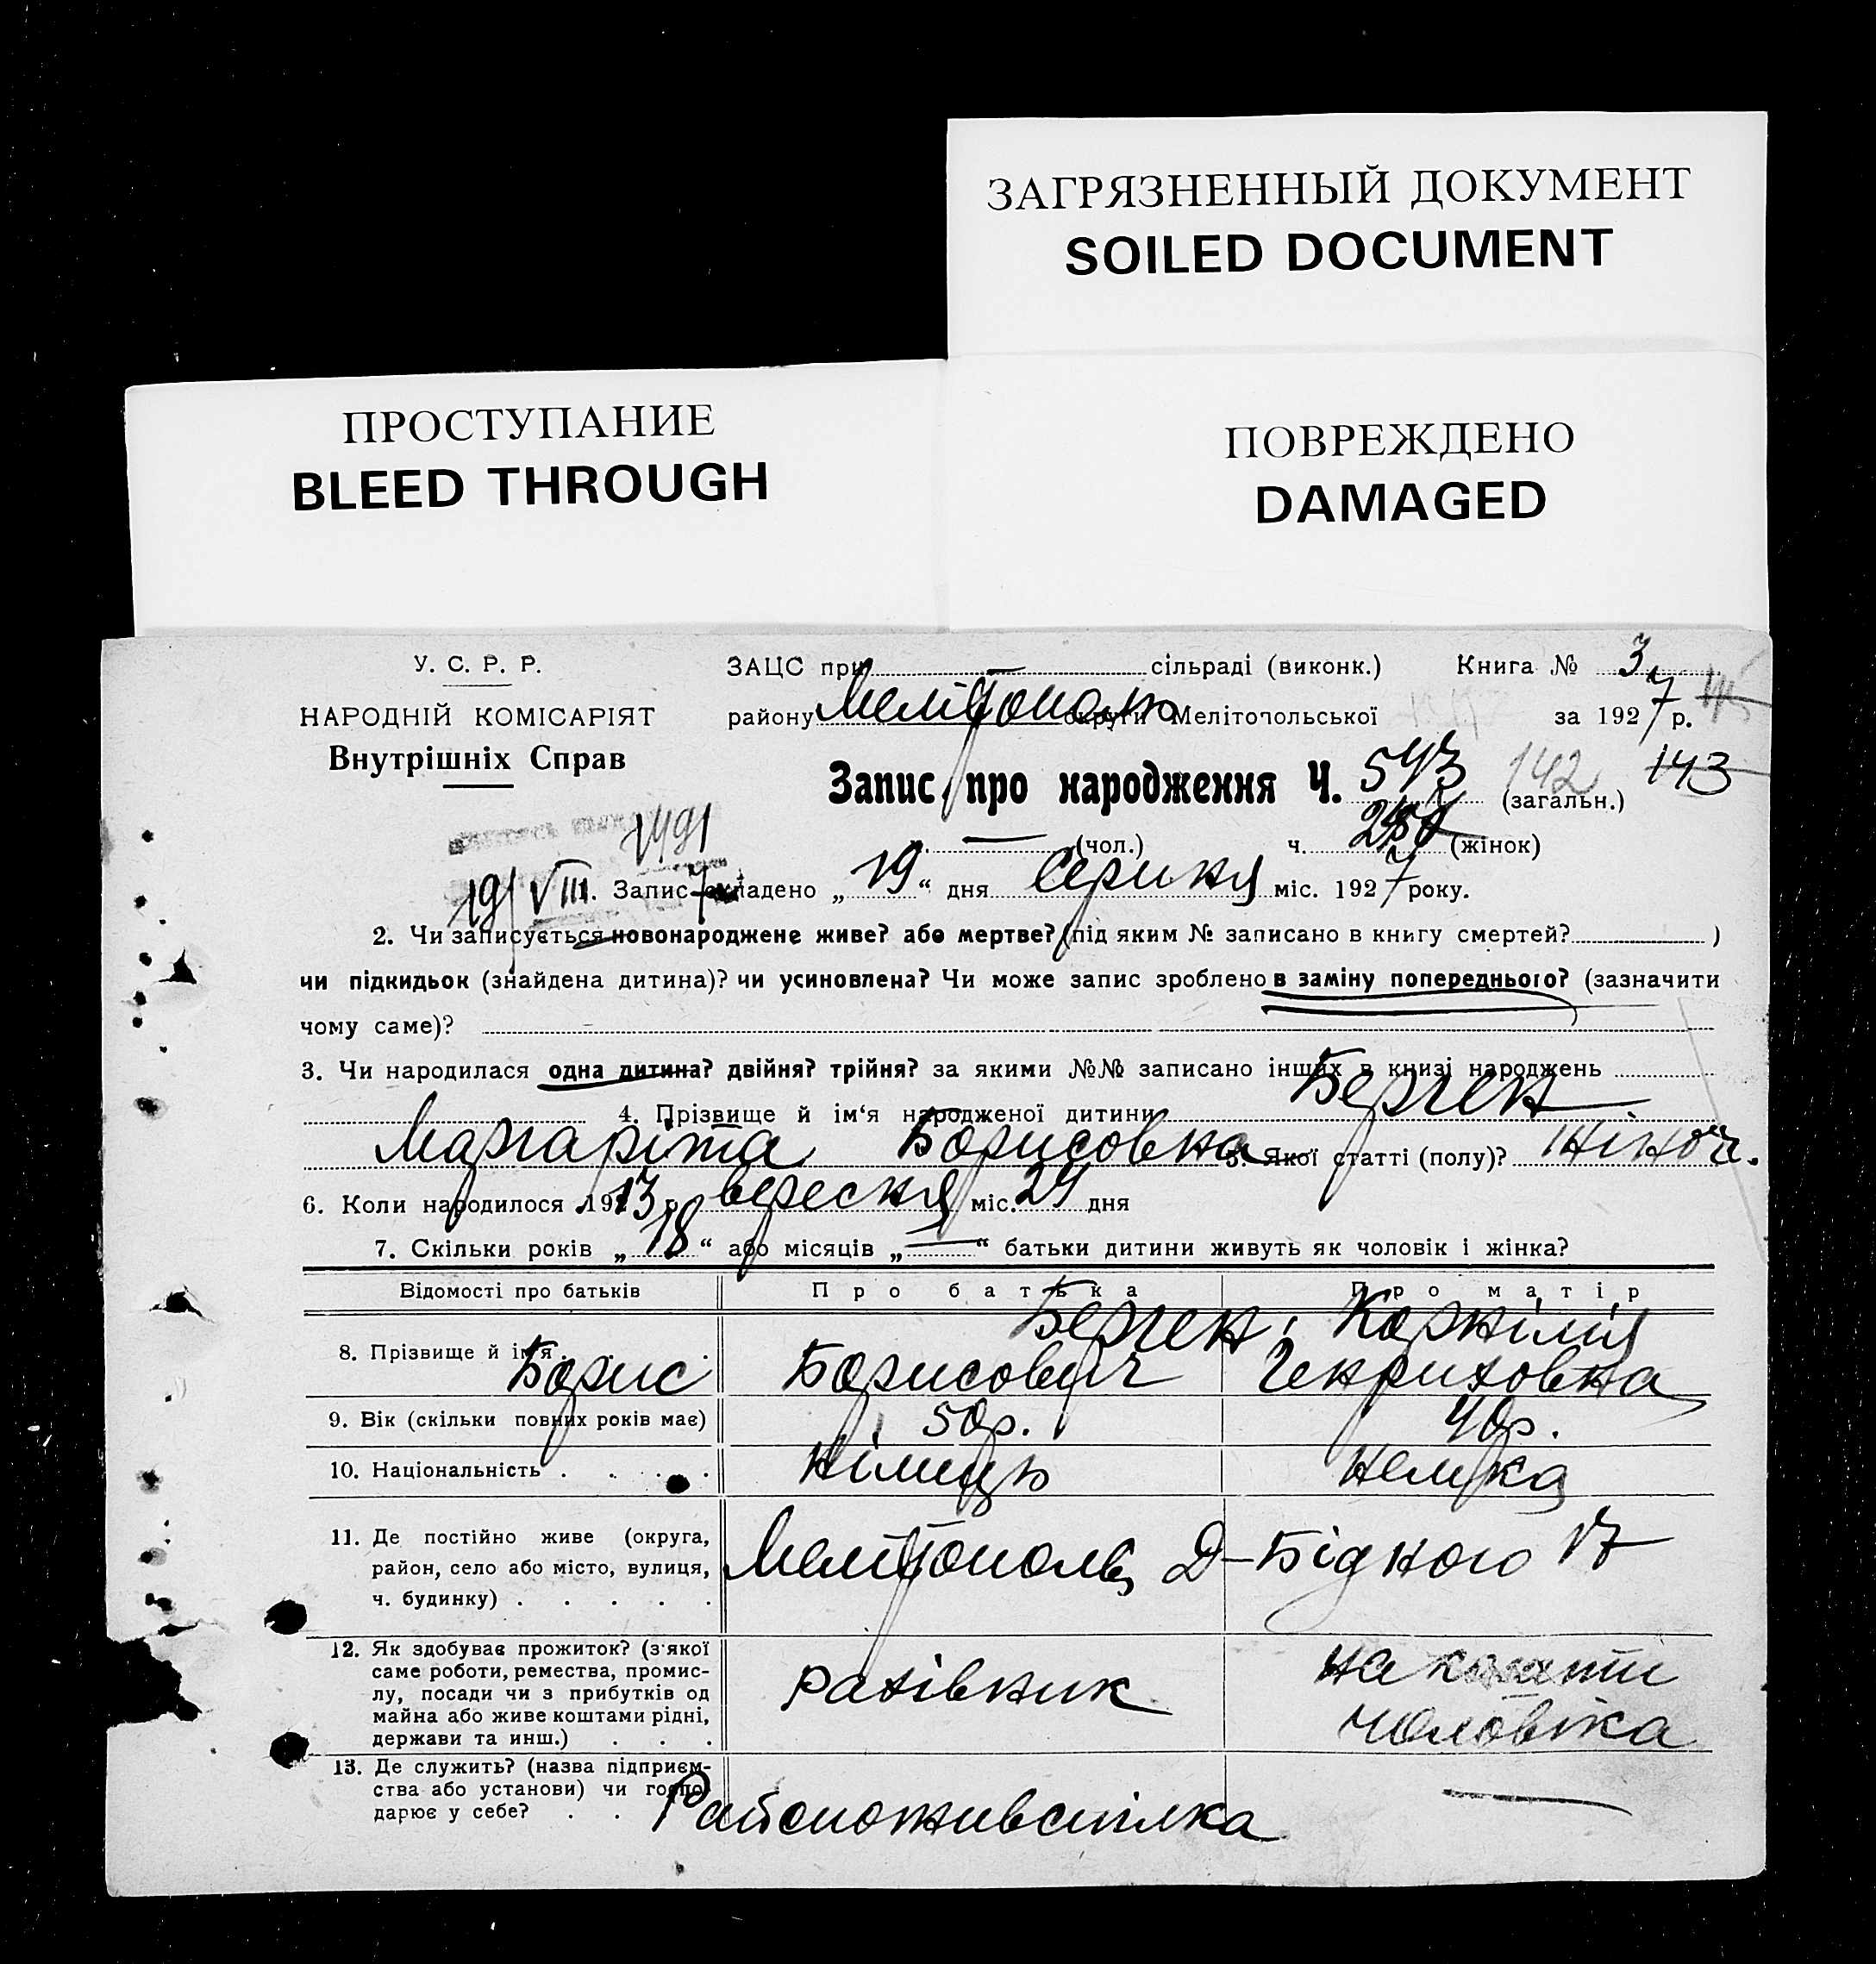 ЗАГРЯЗНЕННЫЙ ДОКУМЕНТ
SOILED DOCUMENT
ПРОСТУПАНИЕ
BLEED THROUGH
ПОВРЕЖДЕНО
DAMAGED
У. С. Р. Р.
НАРОДНІЙ КОМІСАРІЯТ
Внутрішніх Справ
ЗАЦС при — сільраді (виконк.) Книга № 3
району Мелітополь округи Мелітопольської за 1927 р.
Запис про народження Ч. 543 (загальн.) 142 143
— (чол.) ч. (жінок)
1491
19/VIII 7
1. Запис складено „19“ дня Серпня міс. 1927 року.
2. Чи записується новонароджене живе? або мертве? (під яким № записано в книгу смертей? )
чи підкидьок (знайдена дитина)? чи усиновлена? Чи може запис зроблено в заміну попереднього? (зазначити
чому саме)?
3. Чи народилася одна дитина? двійня? трійня? за якими №№ записано інших в книзі народжень
4. Прізвище й ім‘я народженої дитини Берген
Маргаріта Борисовна 5. Якої статті (полу)? жіноч.
6. Коли народилося 1913 р. вересня міс. 24 дня
7. Скільки років „18“ або місяців „—“ батьки дитини живуть як чоловік і жінка?
Відомості про батьків Про батька Про матір
8. Прізвище й ім'я Берген, Корнілія
Борис Борисович Генриховна
9. Вік (скільки повних років має) 50р. 40р.
10. Національність німець немка
11. Де постійно живе (округа,
район, село або місто, вулиця,
ч. будинку) Мелітополь, Д-Бідного 17
12. Як здобуває прожиток? (з'якої
саме роботи, ремества, промис-
лу, посади чи з прибутків од
майна або живе коштами рідні,
держави та инш.) рахівник на кошти
чоловіка
13. Де служить? (назва підприєм-
ства або установи) чи госпо-
дарює у себе? Райспоживспілка —